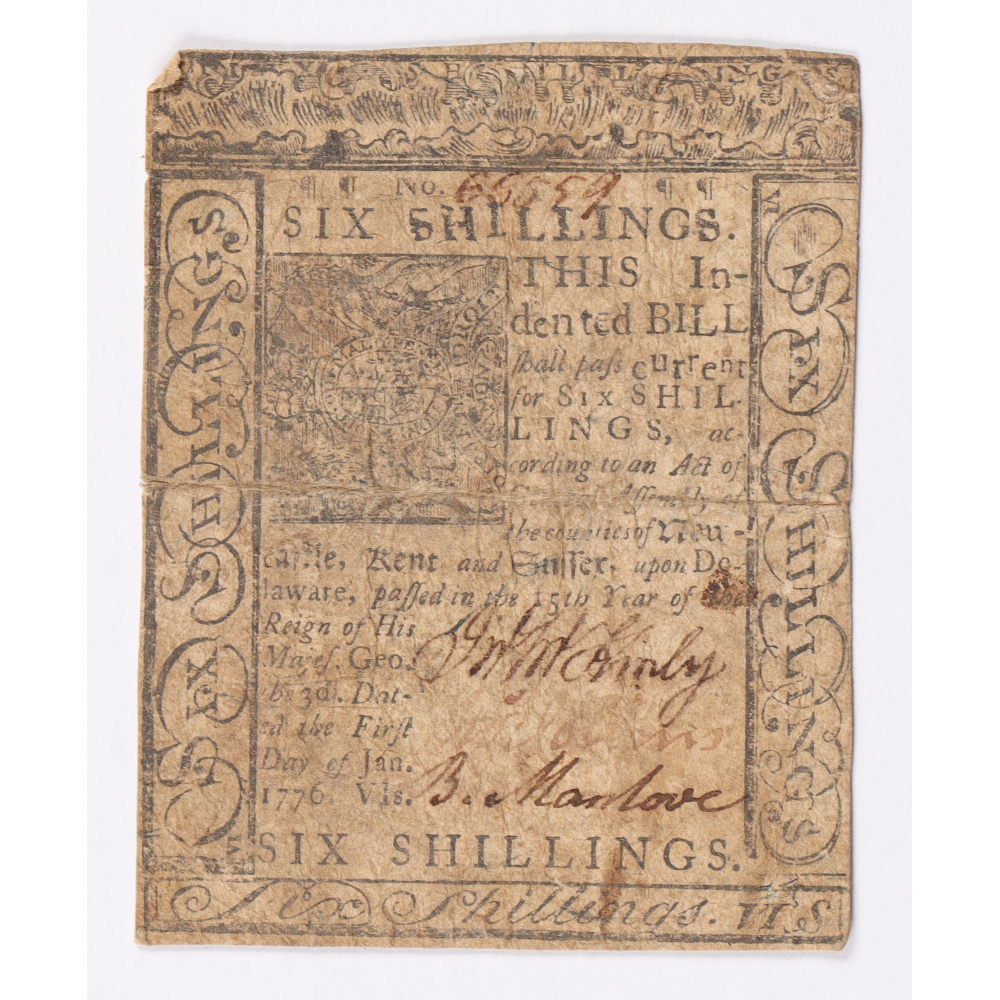 SIX SHILLINGS
No. 66559
SIX SHILLINGS.
THIS In-
dented BILL
shall pass current
for SIX SHIL-
LINGS, ac-
cording to an Act of
General Assembly of
the counties of New-
castle, Kent and Sussex, upon De-
laware, passed in the 15th Year of the
Reign of His
Majes. Geo.
the 3d. Dat-
ed the First
Day of Jan.
1776. VIs.
B. Manlove
SIX SHILLINGS.
Six Shillings. VI S
SIX SHILLINGS
SIX SHILLINGS